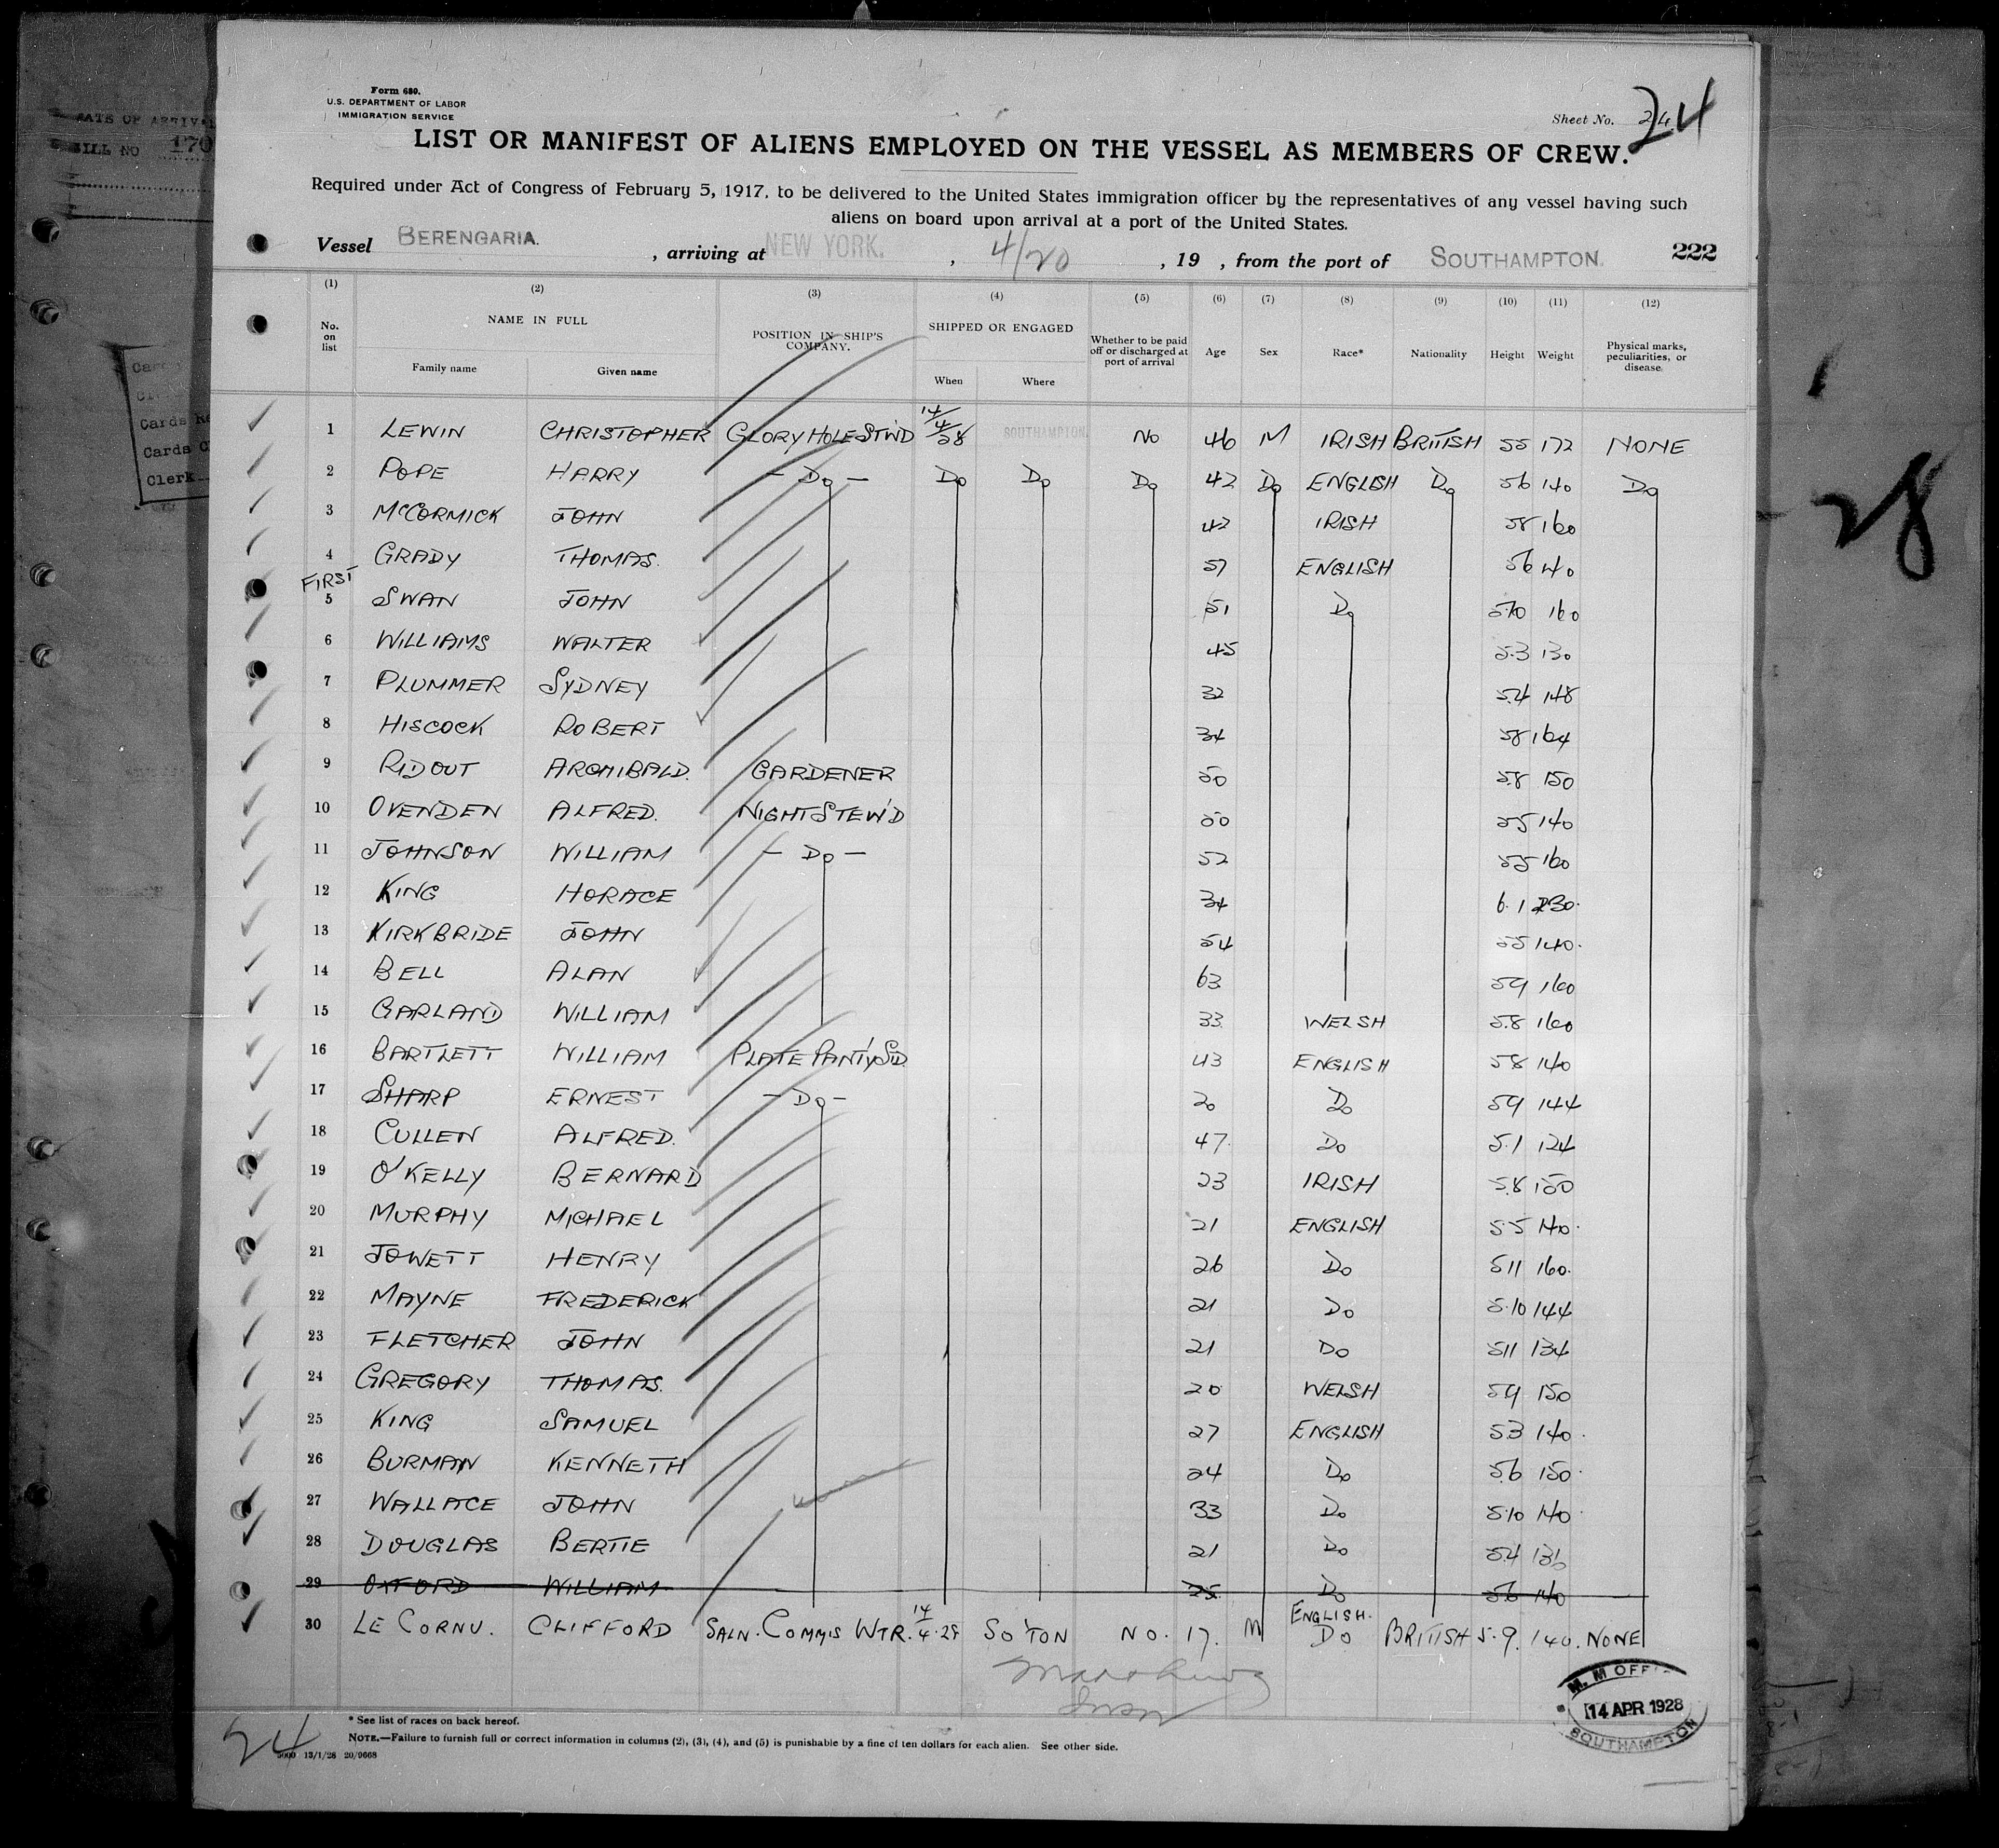 Form 680.
U.S. DEPARTMENT OF LABOR
IMMIGRATION SERVICE
Sheet No. 24
24
LIST OR MANIFEST OF ALIENS EMPLOYED ON THE VESSEL AS MEMBERS OF CREW.
Required under Act of Congress of February 5, 1917, to be delivered to the United States immigration officer by the representatives of any vessel having such
aliens on board upon arrival at a port of the United States.
Vessel BERENGARIA. , arriving at NEW YORK. , 4/20 , 19 , from the port of SOUTHAMPTON. 222
(1) (2) (3) (4) (5) (6) (7) (8) (9) (10) (11) (12)
No. on list NAME IN FULL Family name Given name POSITION IN SHIP'S COMPANY. SHIPPED OR ENGAGED When Where Whether to be paid off or discharged at port of arrival Age Sex Race* Nationality Height Weight Physical marks, peculiarities, or disease.
1 LEWIN CHRISTOPHER GLORY HOLE ST'W'D 14/4/28 SOUTHAMPTON. NO 46 M IRISH BRITISH 55 172 NONE
2 POPE HARRY - Do - Do Do Do 42 Do ENGLISH Do 56 140 Do
3 McCORMICK JOHN 42 IRISH 58 160
4 GRADY THOMAS. 57 ENGLISH 56 140
FIRST
5 SWAN JOHN 51 Do 5.10 160
6 WILLIAMS WALTER 45 5.3 130
7 PLUMMER SYDNEY 32 5.4 148
8 HISCOCK ROBERT 34 58 164
9 RIDOUT ARCHIBALD. GARDENER 50 5.8 150
10 OVENDEN ALFRED. NIGHT STEW'D 50 55 140
11 JOHNSON WILLIAM - Do - 52 55 160
12 KING HORACE 34 6.1 230.
13 KIRKBRIDE JOHN 54 55 140.
14 BELL ALAN 63 59 160
15 GARLAND WILLIAM 33 WELSH 5.8 160
16 BARTLETT WILLIAM PLATE PANT'Y S'D 43 ENGLISH 58 140
17 SHARP ERNEST - Do - 20 Do 59 144
18 CULLEN ALFRED. 47. Do 5.1 124
19 O'KELLY BERNARD 23 IRISH 5.8 150
20 MURPHY MICHAEL 21 ENGLISH 5.5 140.
21 JOWETT HENRY 26 Do 511 160.
22 MAYNE FREDERICK 21 Do 5.10 144
23 FLETCHER JOHN 21 Do 511 134
24 GREGORY THOMAS. 20 WELSH 59 150
25 KING SAMUEL 27 ENGLISH 53 140.
26 BURMAN KENNETH 24 Do 5.6 150.
27 WALLACE JOHN 33 Do 5.10 140.
28 DOUGLAS BERTIE 21 Do 5.4
29 OXFORD WILLIAM 25 Do 5.6 140
30 LE CORNU. CLIFFORD SALN. COMMIS WTR. 14/4.28 SO'TON NO. 17. M ENGLISH. Do BRITISH 5.9. 140. NONE
M.M OFFI
14 APR 1928
SOUTHAMPTON
* See list of races on back hereof.
NOTE.—Failure to furnish full or correct information in columns (2), (3), (4), and (5) is punishable by a fine of ten dollars for each alien. See other side.
24
5000 13/1/28 20/9668
28
BILL NO 170
Cards
Cards
Clerk